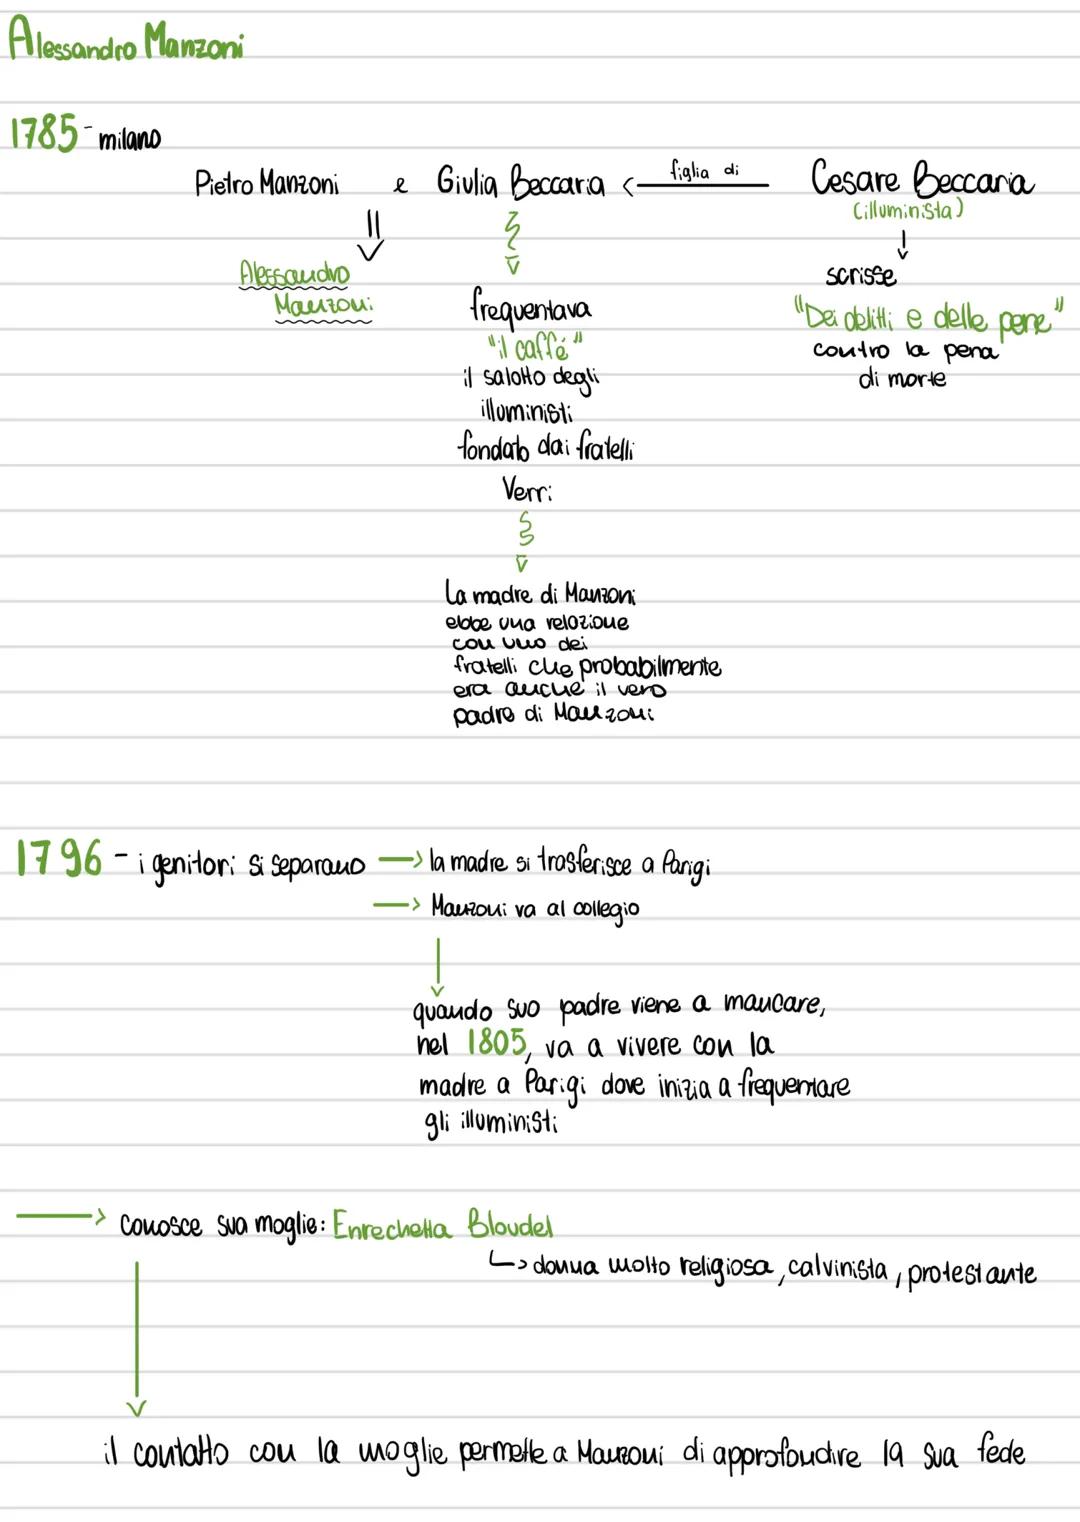 Alessandro Manzoni
1785 - milano
Pietro Manzoni e Giulia Beccaria figlia di Cesare Beccaria
(illuminista)
Alessandro
Manzoni
frequentava
"il caffé"
il salotto degli
illuministi
fondato dai fratelli
Verri
La madre di Manzoni
ebbe una relazione
con uno dei
fratelli che probabilmente
era anche il vero
padre di Manzoni
scrisse
"Dei delitti e delle pene"
contro la pena
di morte
1796 - i genitori si separano → la madre si trasferisce a Parigi
→ Manzoni va al collegio
quando suo padre viene a mancare,
nel 1805, va a vivere con la
madre a Parigi dove inizia a frequentare
gli illuministi
→ conosce sua moglie: Enrechetta Bloudel
↳ donna molto religiosa, calvinista, protestante
il contatto con la moglie permette a Manzoni di approfondire la sua fede